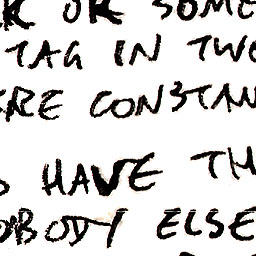 OR SOME
TAG IN TWO
ERE CONSTAN
HAVE TH
OBODY ELSE